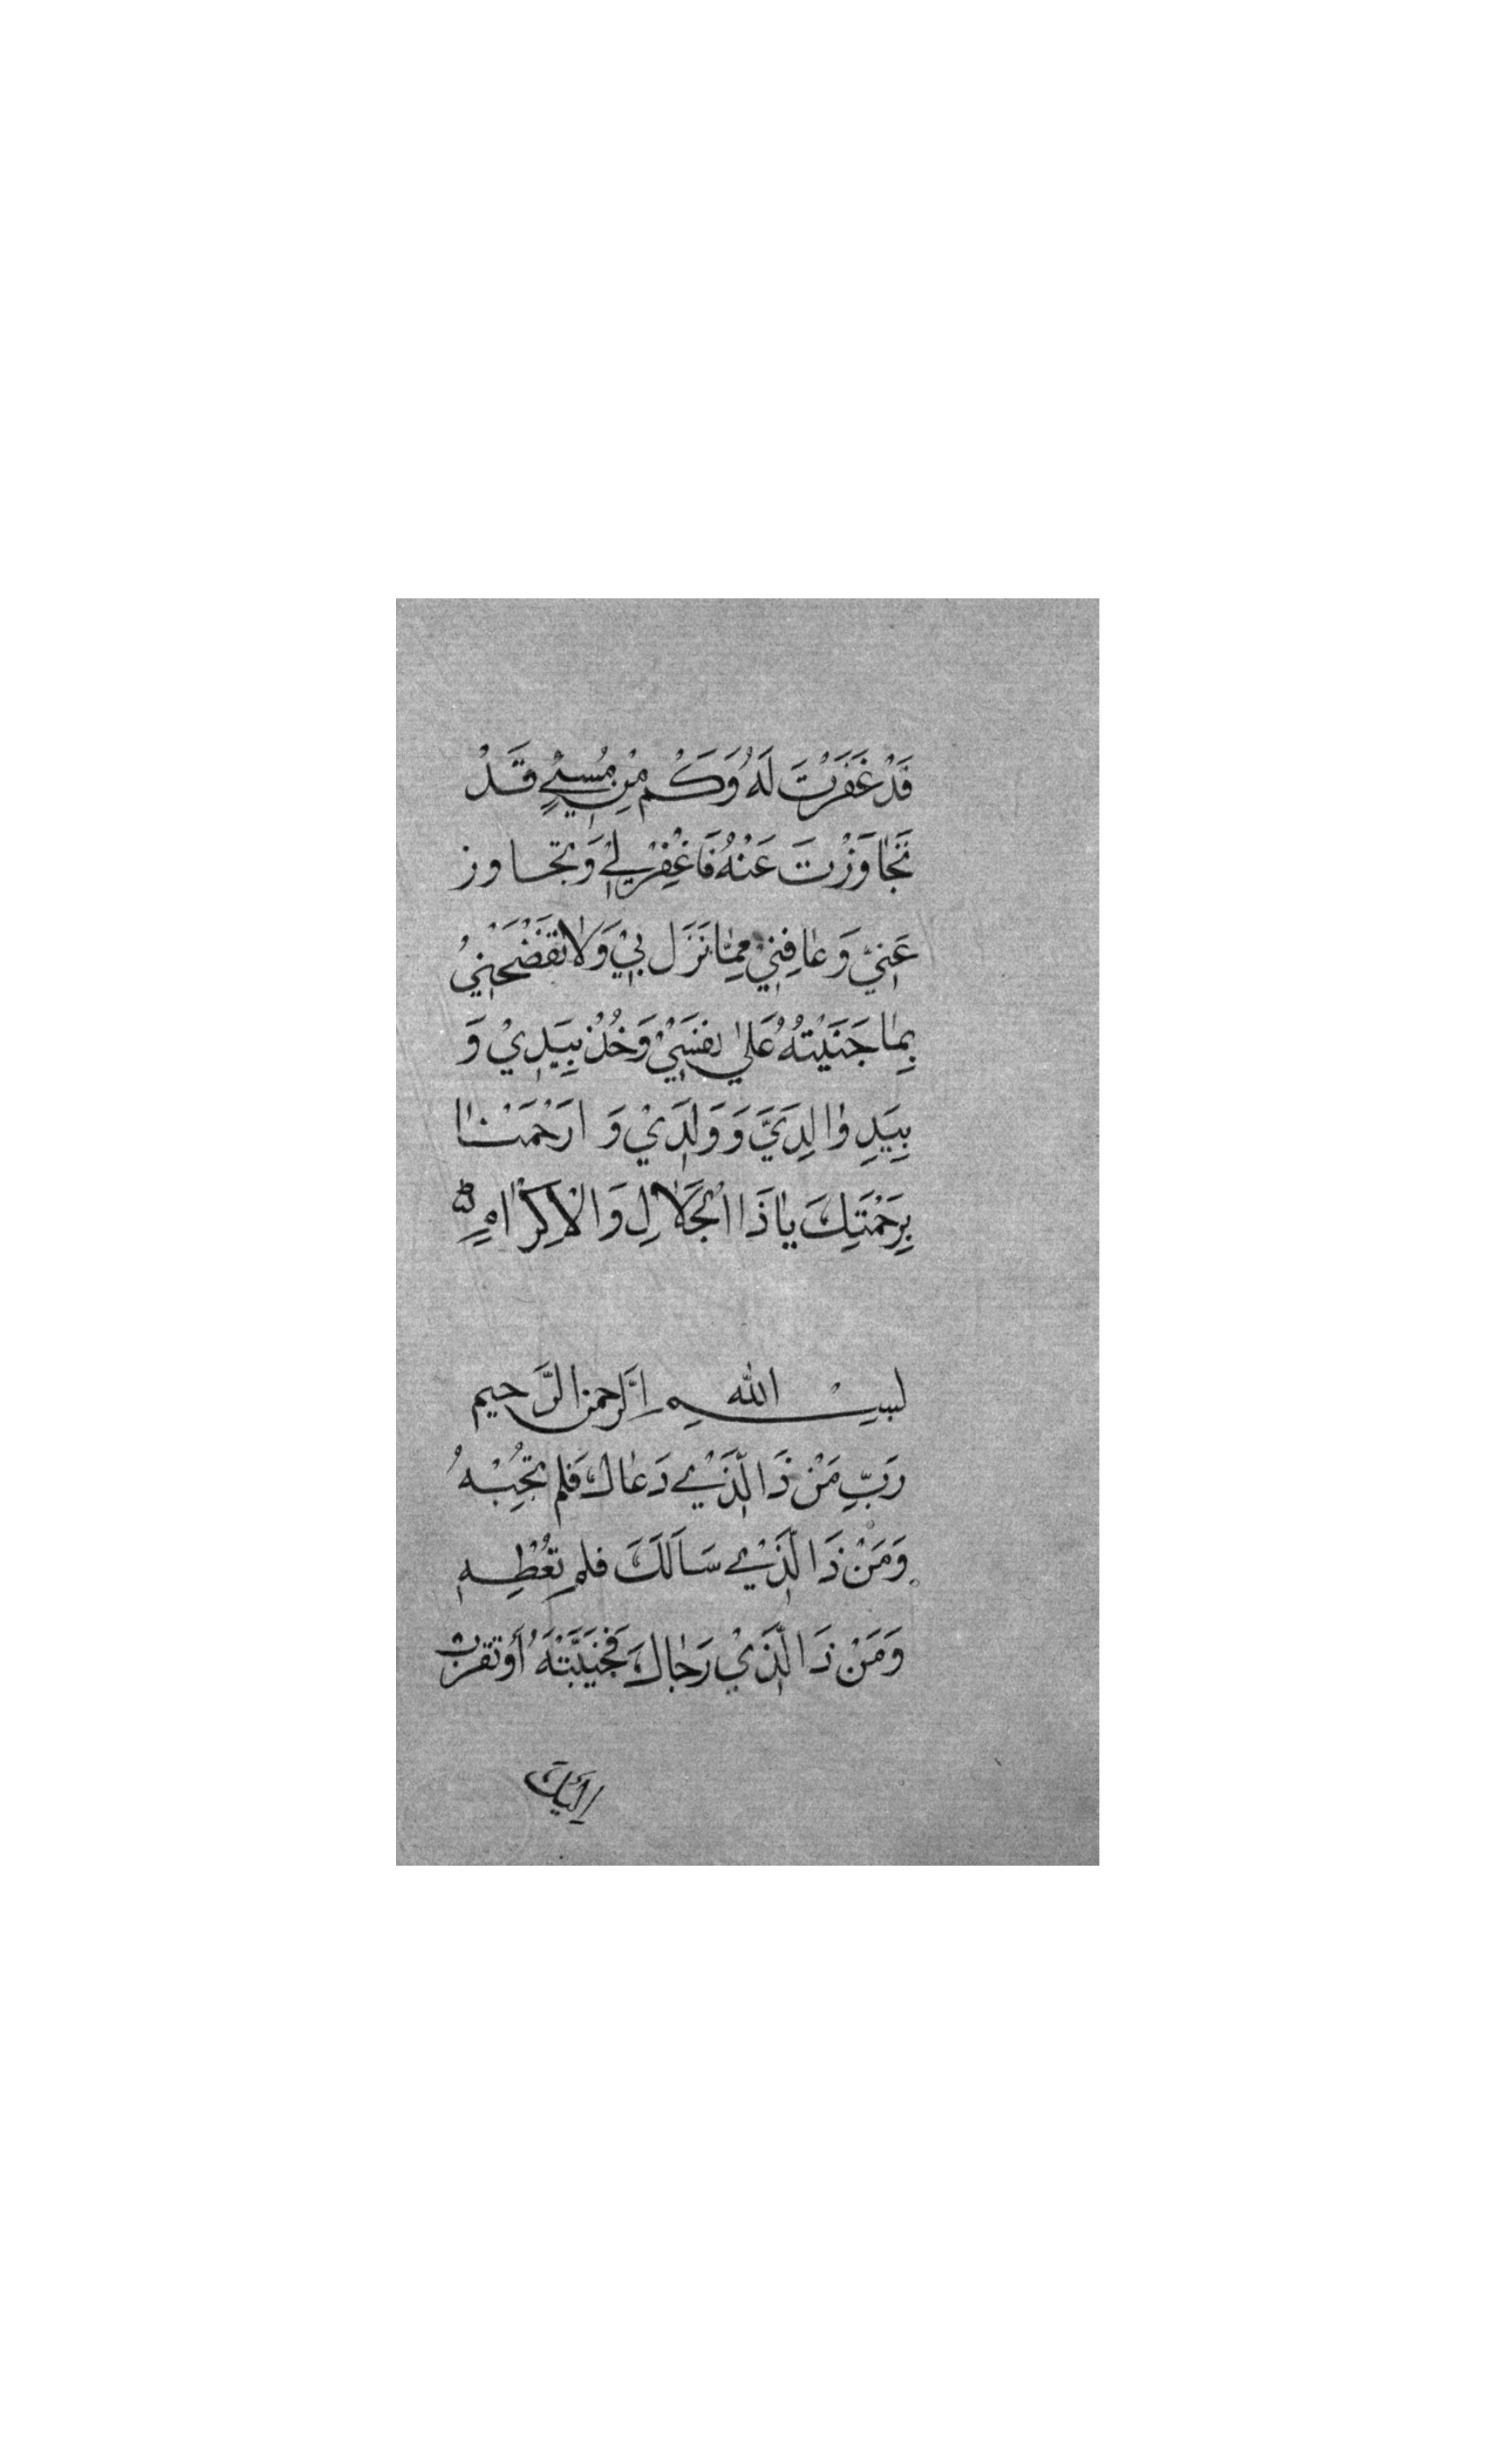 قَدْ غَفَرْتَ لَهُ وَكَمْ مِنْ مُسِيْءٍ قَدْ
تَجَاوَزْتَ عَنْهُ فَاغْفِرْ لِيْ وَتَجاوز
عَنِّيْ وَعَافِنِيْ مِمَّا نَزَلَ بِيْ وَلَا تَفْضَحْنِيْ
بِمَا جَنَيْتُهُ عَلَى نَفْسِيْ وَخُذْ بِيَدِيْ وَ
بِيَدِ وَالِدَيَّ وَوَلَدِيْ وَارْحَمْنَا
بِرَحْمَتِكَ يَاذَا الْجَلَالِ وَالْاِكْرَامِ
بِسْمِ اللّٰهِ الرَّحمنِ الرَّحيم
رَبِّ مَنْ ذَا الَّذِيْ دَعَاكَ فَلم تُجِبْهُ
وَمَنْ ذَا الَّذِيْ سَاَلَكَ فلم تُعْطِهِ
وَمَنْ ذَا الَّذِيْ رَجَاكَ فَخَيَّبْتَهُ أَوْ تقرب
اِلَيْكَ